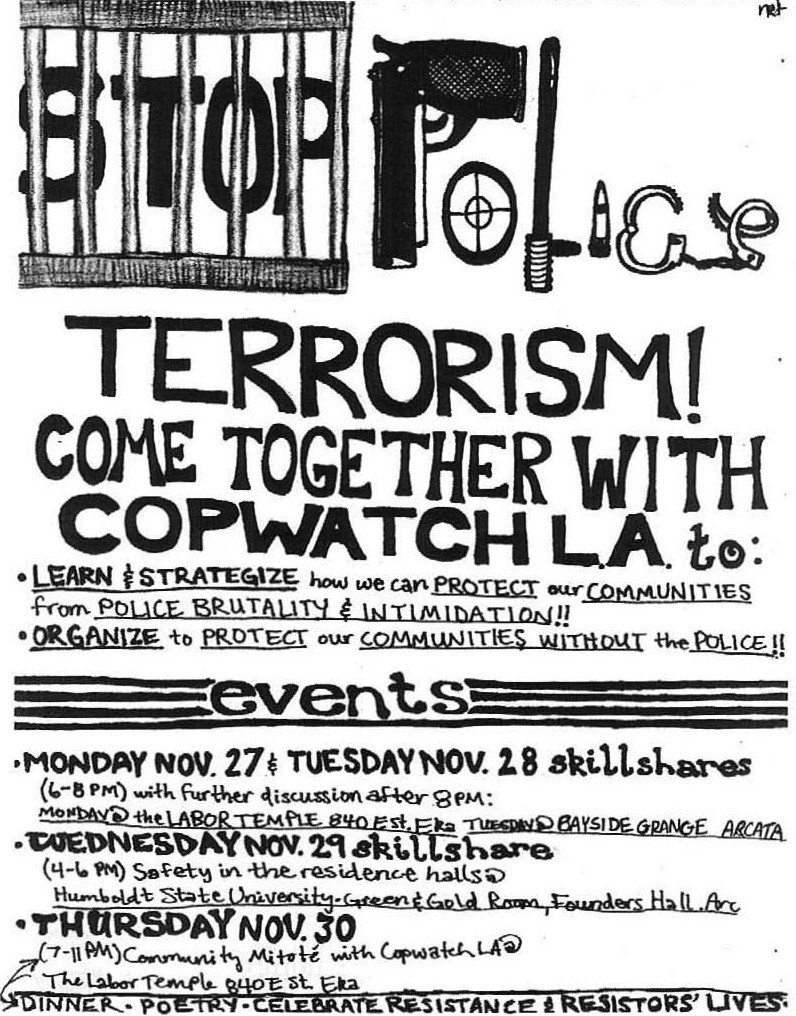 net
STOP POLICE
TERRORISM!
COME TOGETHER WITH
COPWATCH L.A. to:
• LEARN & STRATEGIZE how we can PROTECT our COMMUNITIES
from POLICE BRUTALITY & INTIMIDATION!!
• ORGANIZE to PROTECT our COMMUNITIES WITHOUT the POLICE!!
events
• MONDAY NOV. 27 & TUESDAY NOV. 28 skillshares
(6-8 PM) with further discussion after 8 PM:
MONDAY@ the LABOR TEMPLE 840 E st. Eka TUESDAY@ BAYSIDE GRANGE ARCATA
• WEDNESDAY NOV. 29 skillshare
(4-6 PM) Safety in the residence halls@
Humboldt State University-Green & Gold Room, Founders Hall. Arc
• THURSDAY NOV. 30
(7-11 PM) Community Mitoté with Copwatch LA@
The Labor Temple 840 E st. Eka
DINNER • POETRY • CELEBRATE RESISTANCE & RESISTORS' LIVES •